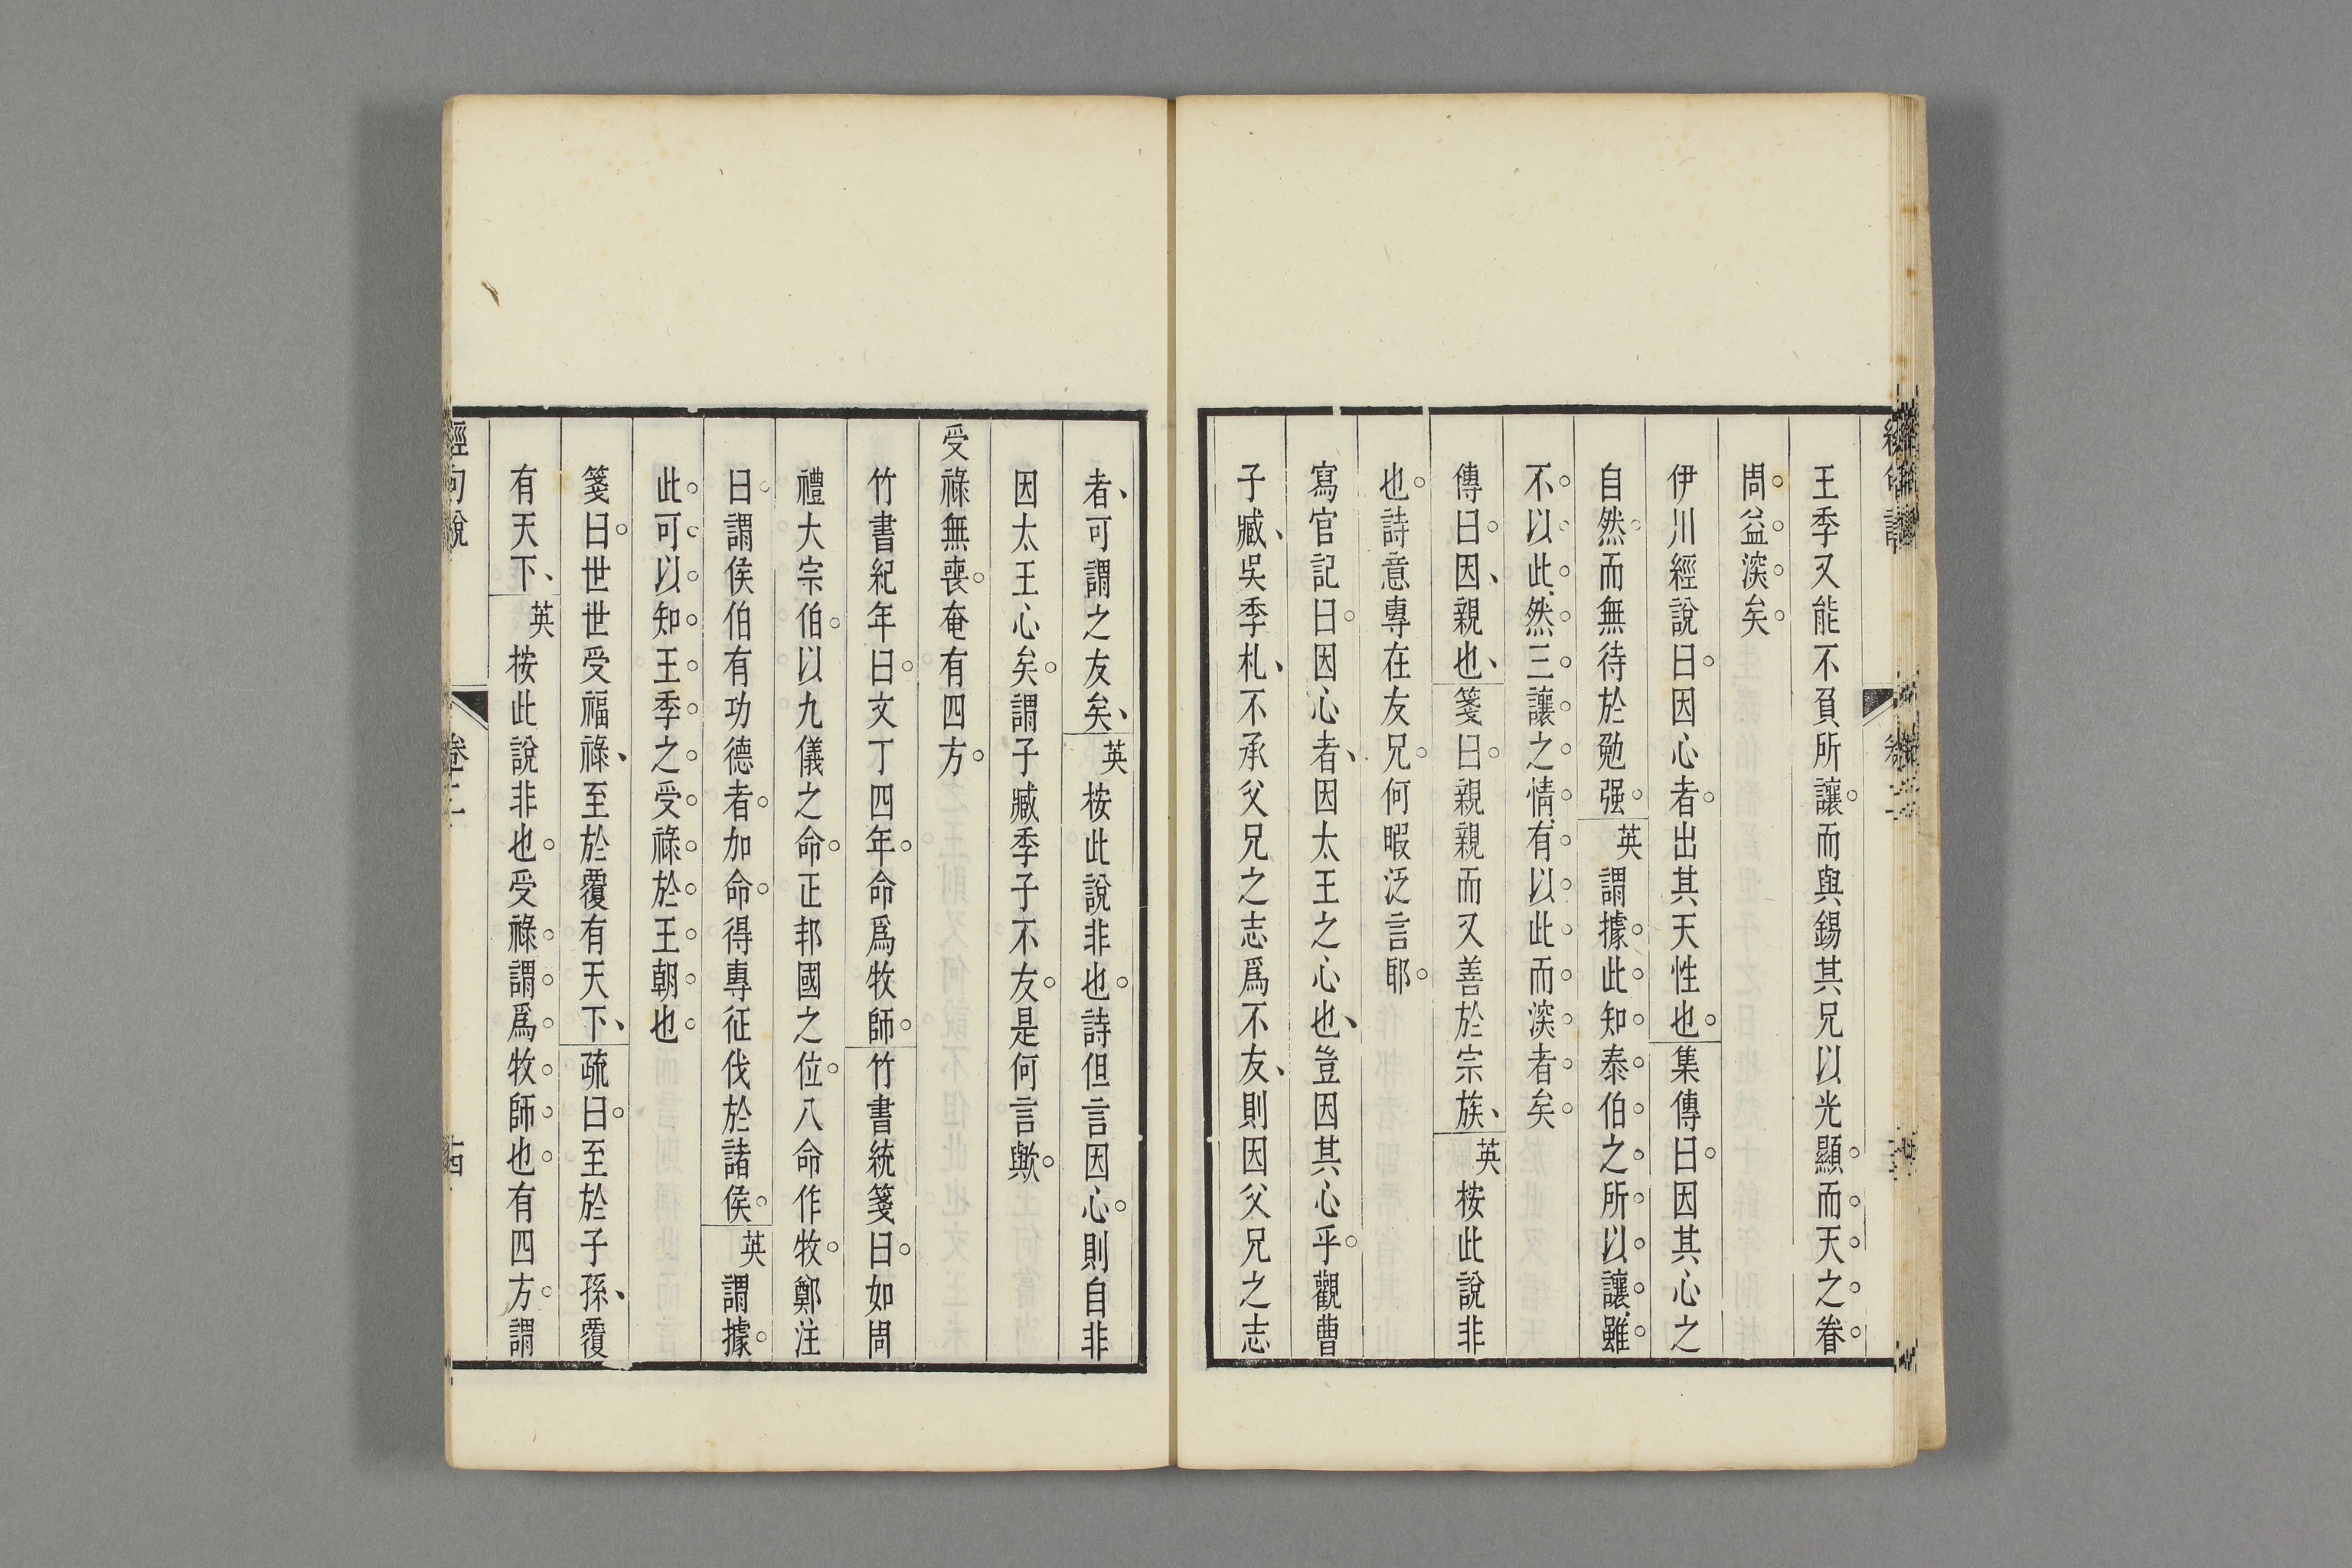 王季又能不負所讓而與錫其兄以光顯而天之眷
周益深矣
伊川經說曰因心者出其天性也集傳曰因其心之
自然而無待於勉强英謂據此知泰伯之所以讓雖
不以此然三讓之情有以此而深者矣
傳曰因親也箋曰親親而又善於宗族英按此說非
也詩意專在友兄何暇泛言耶
寫官記曰因心者因太王之心也豈因其心乎觀曹
子臧吳季札不承父兄之志爲不友則因父兄之志
者可謂之友矣英按此說非也詩但言因心則自非
因太王心矣謂子臧季子不友是何言歟
受祿無喪奄有四方
竹書紀年曰文丁四年命爲牧師竹書統箋曰如周
禮大宗伯以九儀之命正邦國之位八命作牧鄭注
曰謂侯伯有功德者加命得專征伐於諸侯英謂據
此可以知王季之受祿於王朝也
箋曰世世受福祿至於覆有天下疏曰至於子孫覆
有天下英按此說非也受祿謂爲牧師也有四方謂
經句說